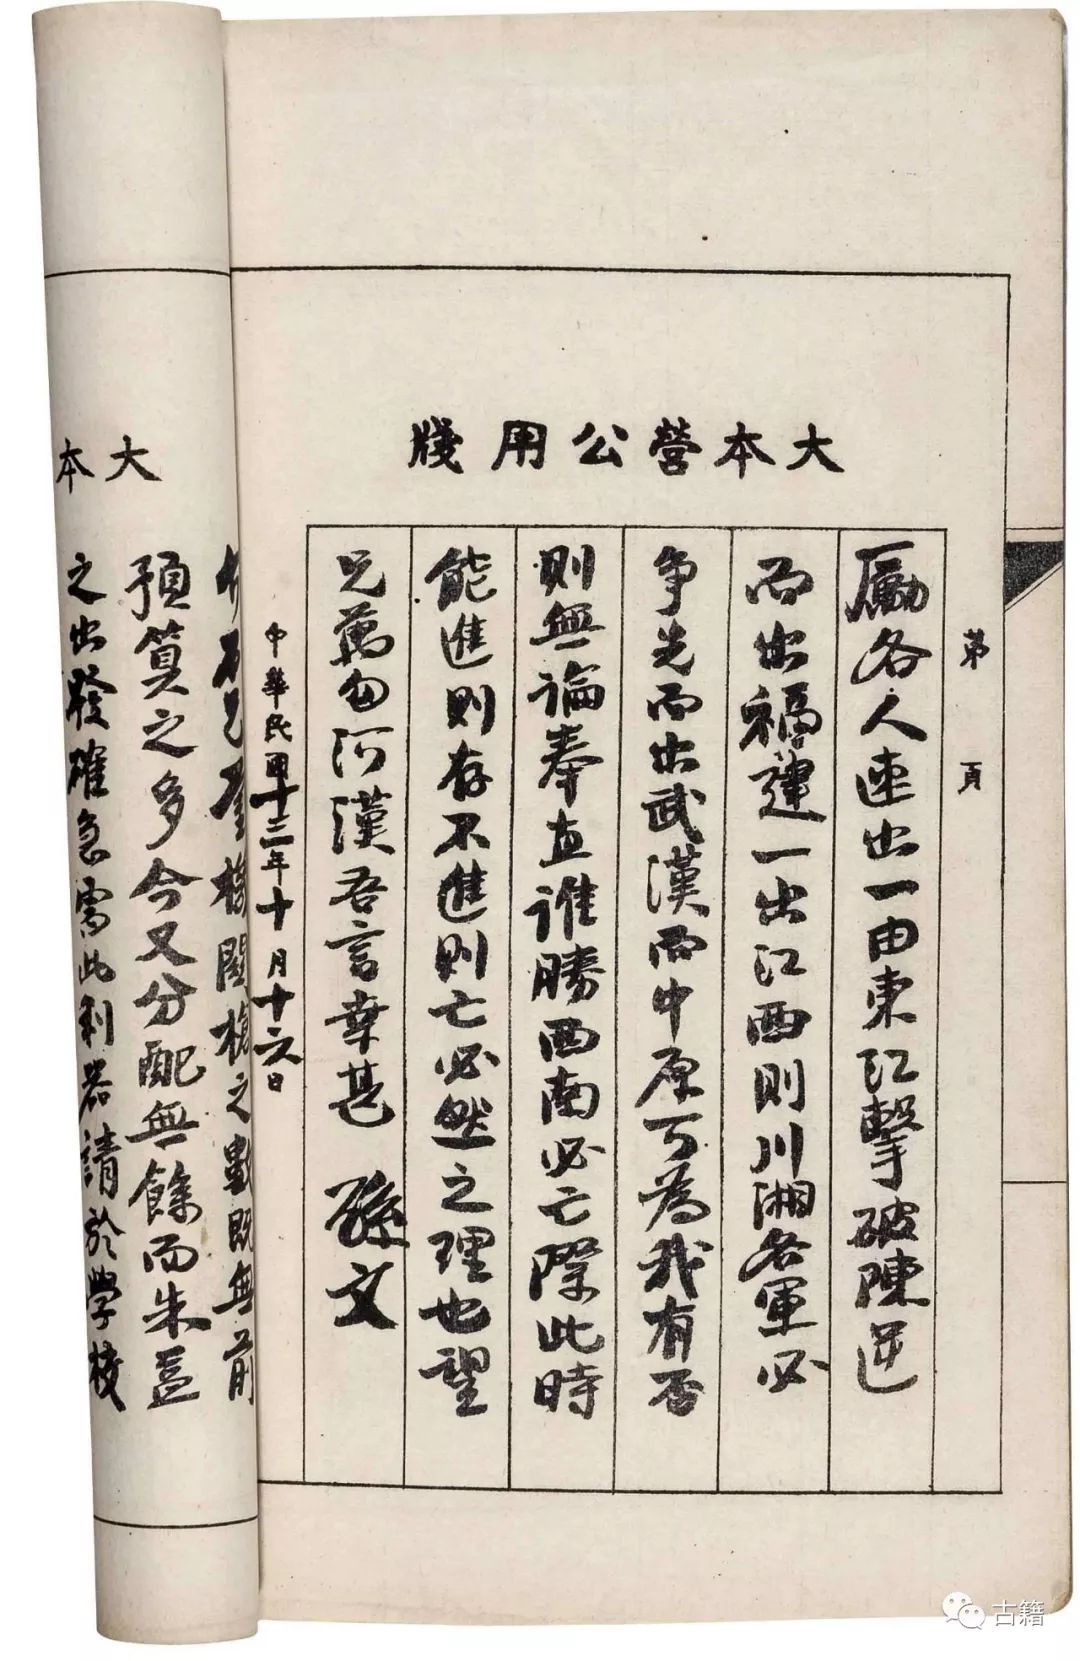 第 頁
大本營公用牋
勵各人速出一由東江擊破陳逆
而出福建一出江西則川湘各軍必
争先而出武漢而中原可為我有否
則無論奉直誰勝西南必亡際此時
能進則存不進則亡必然之理也望
兄萬勿河漢吾言幸甚 孫文
中華民國十三年十月十六日
大本
介石兄鑒機關槍之數既無前
預算之多今又分配無餘而朱益
之出發確急需此利器請於學校
古籍